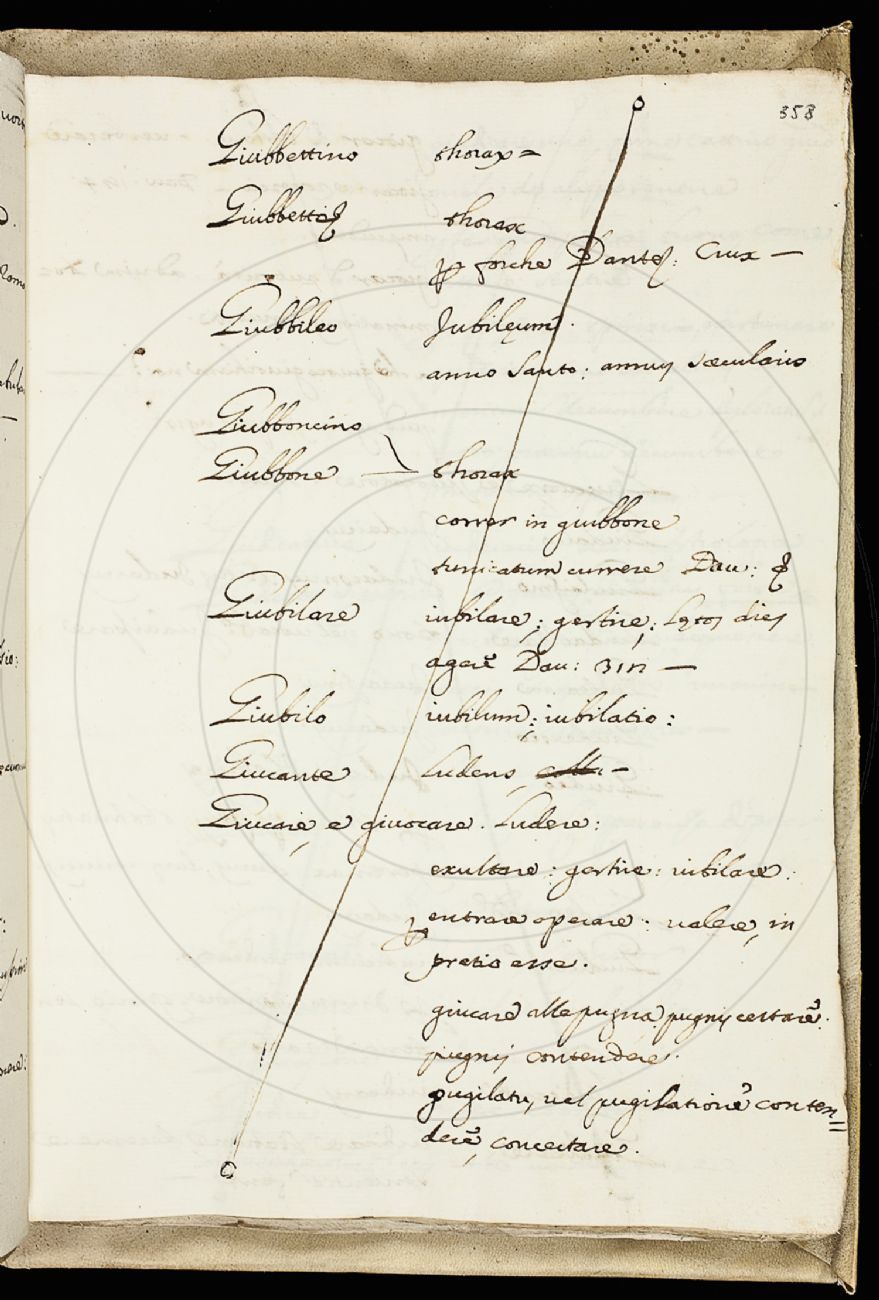 358
Giubbettino thorax =
Giubbetto thorax
p forche Dante: Crux —
Giubbileo Jubilęum.
anno Santo: annus sæcularis
Giubboncino
Giubbone — thorax
correr in giubbone
tunicatum currere Dau:
Giubilare iubilare; gestire; Lętos dies
agere Dau: 311 —
Giubilo iubilum; iubilatio:
Giucante Ludens, —
Giucare, e giuocare. Ludere:
exultare: gestire: iubilare:
p entrare operare: ualere, in
pretio esse.
giucare alle pugna. pugnis certare.
pugnis contendere.
pugilatu, uel pugilatione conten=
dere, concertare.